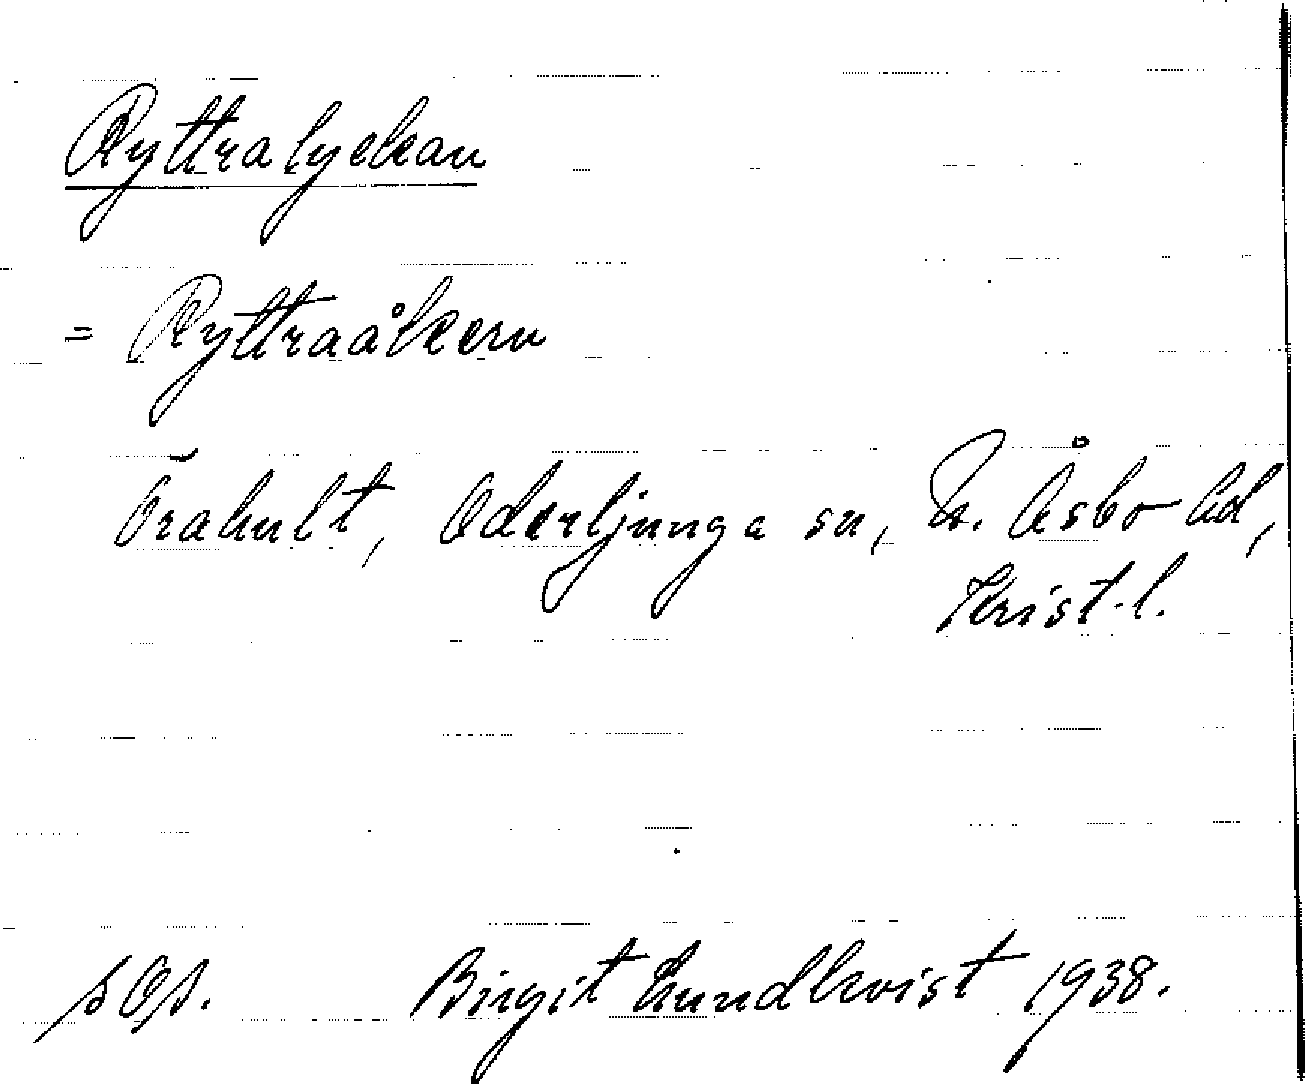 Ryttralyckan
= Ryttraåkern
Örahult, Oderljunga sn, N. Åsbo hd,
Krist. l.
Birgit Lundkvist 1938.